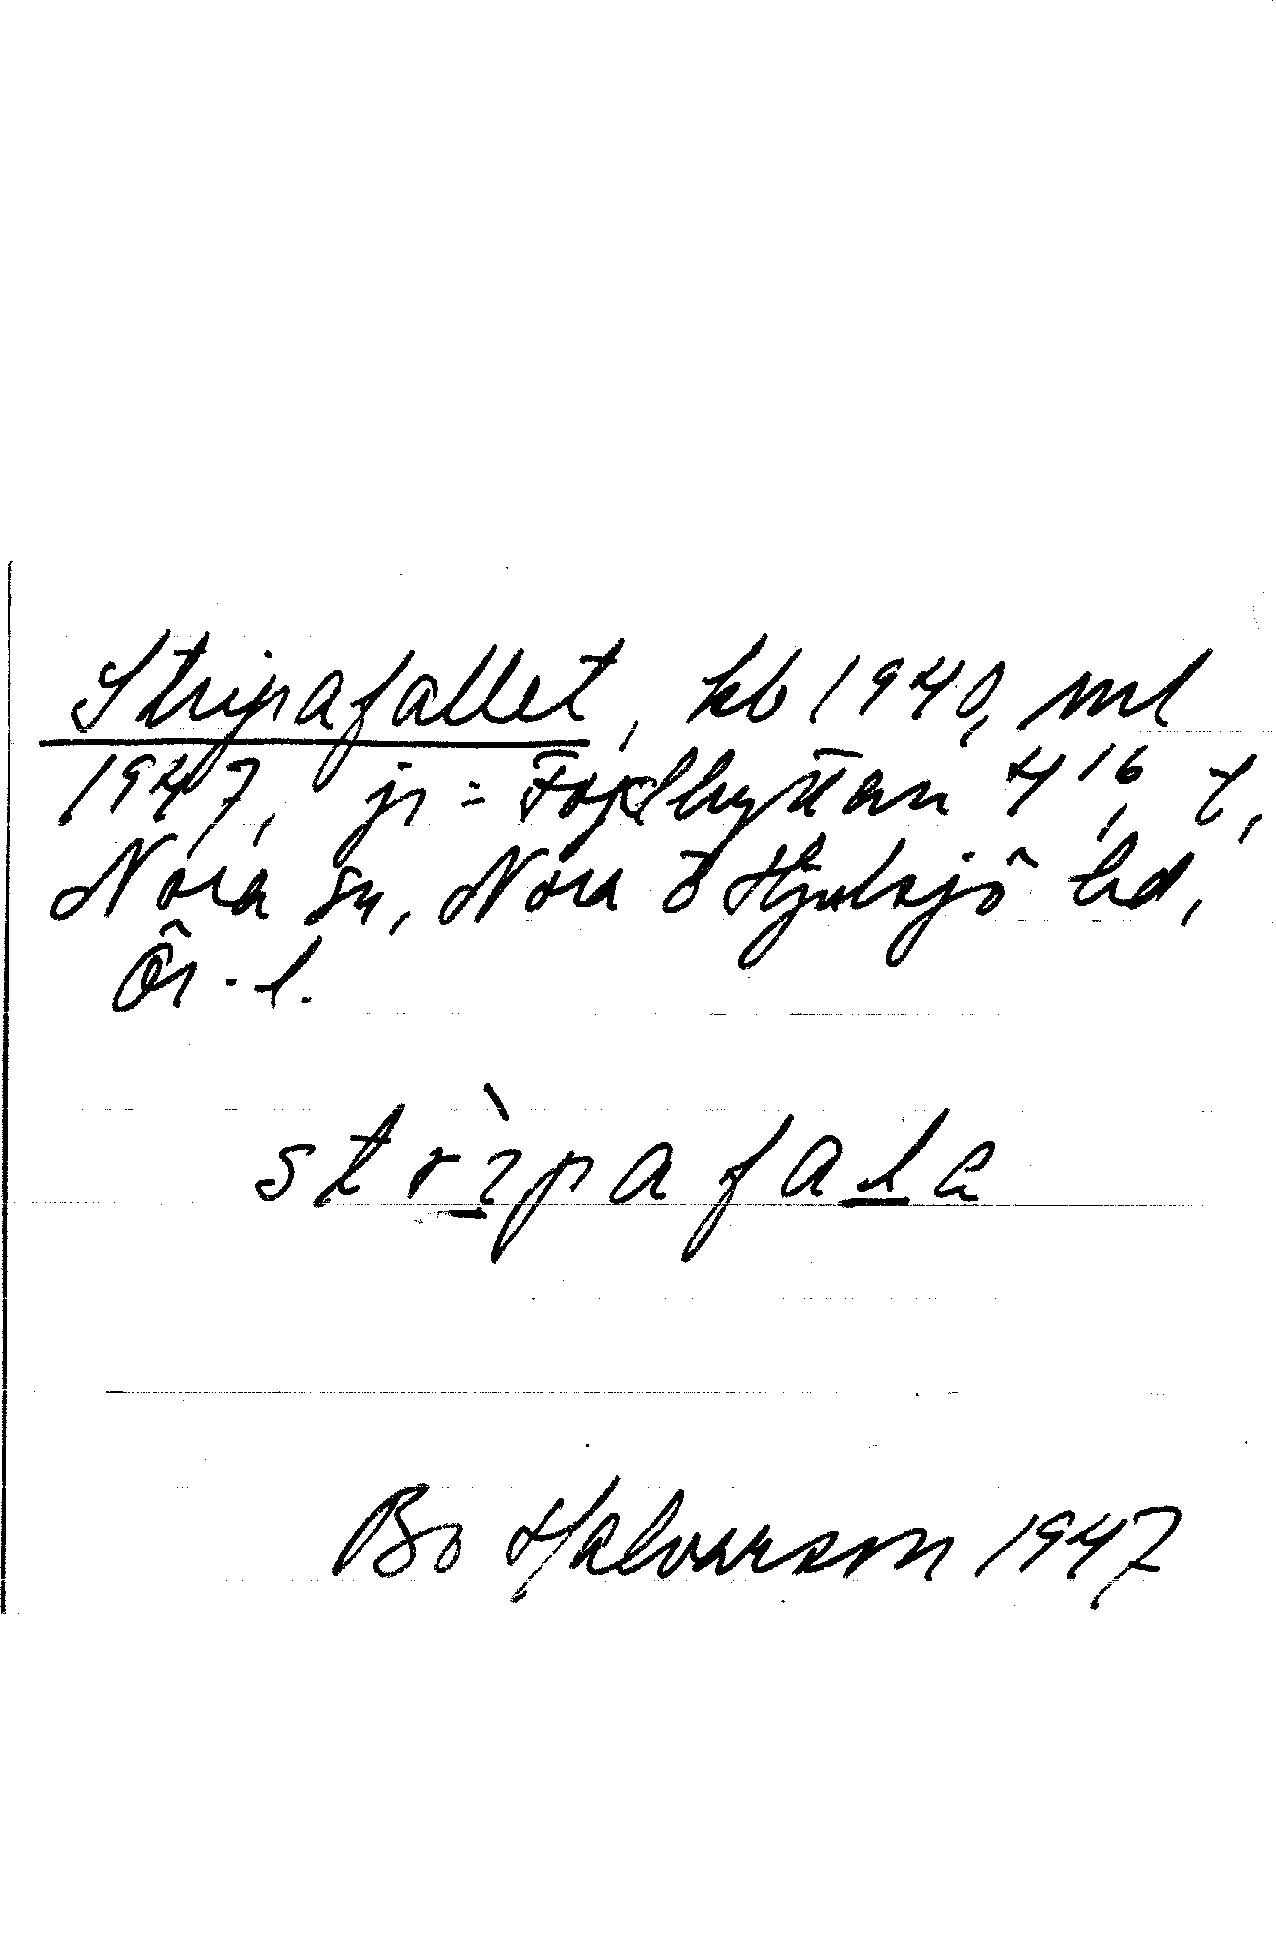 Stripafallet, kb 1940, ml
1947, jr = Fogdhyttan 4¹⁶, t,
Nora sn, Nora o Hjulsjö hd,
Ör-l.
strìpafala
Bo Halvarson 1947